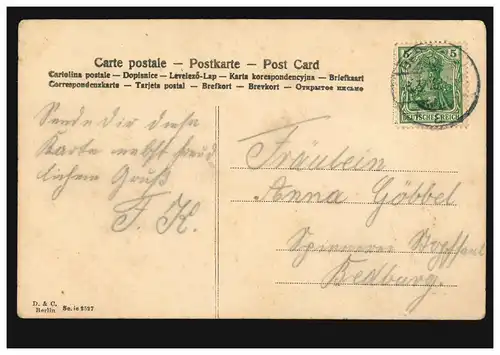 Carte postale — Postkarte — Post Card
Cartolina postale — Dopisnice — Levelező-Lap — Karta korespondencyjna — Briefkaart
Correspondenzkarte — Tarjeta postal — Brefkort — Brevkort — Открытое письмо
5
DEUTSCHES REICH
Sende Dir diese
Karte nebst freud
lichem Gruß
F. K.
Fräulein
Anna Göbbel
Spinnerei
Bedburg.
D. & C.
Berlin